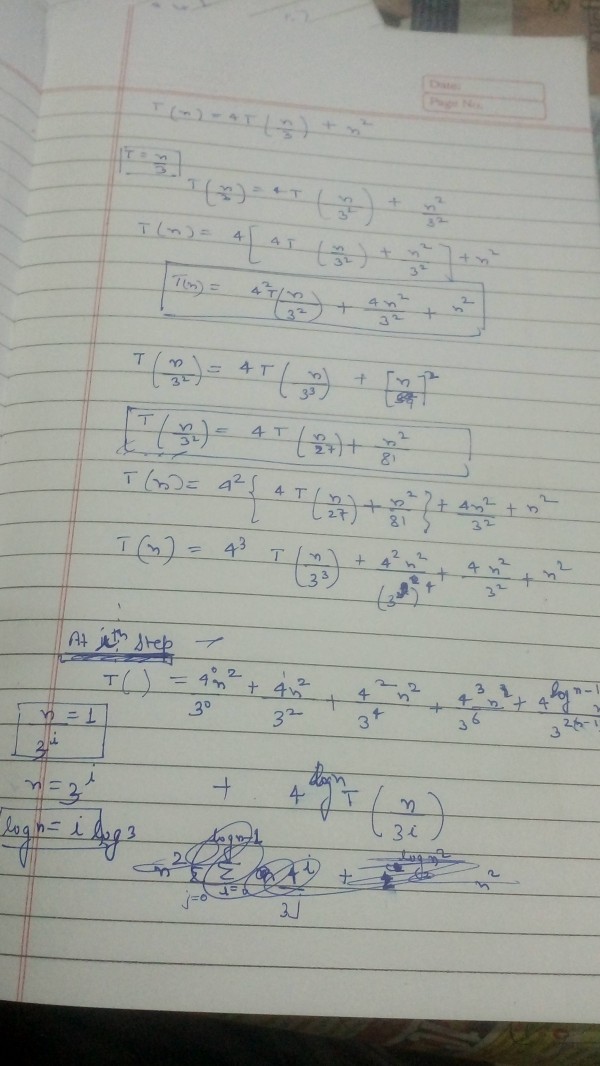 Date:
Page No.
T(n) = 4T(n/3) + n²
T = n/3
T(n/3) = 4T(n/3²) + n²/3²
T(n) = 4[4T(n/3²) + n²/3²] + n²
T(n) = 4²T(n/3²) + 4n²/3² + n²
T(n/3²) = 4T(n/3³) + [n/]²
T(n/3²) = 4T(n/27) + n²/81
T(n) = 4²{4T(n/27) + n²/81} + 4n²/3² + n²
T(n) = 4³ T(n/3³) + 4²n²/(3)⁴ + 4n²/3² + n²
At ith step
T( ) = 4⁰n²/3⁰ + 4¹n²/3² + 4²n²/3⁴ + 4³n²/3⁶ + 4^(log n-1) n/3^2(n-1)
n/3^i = 1
n = 3^i + 4^(log n) T(n/3i)
log n = i log 3
n² log n-1 Σ 4^i + n²
j=0 i=0 3^j